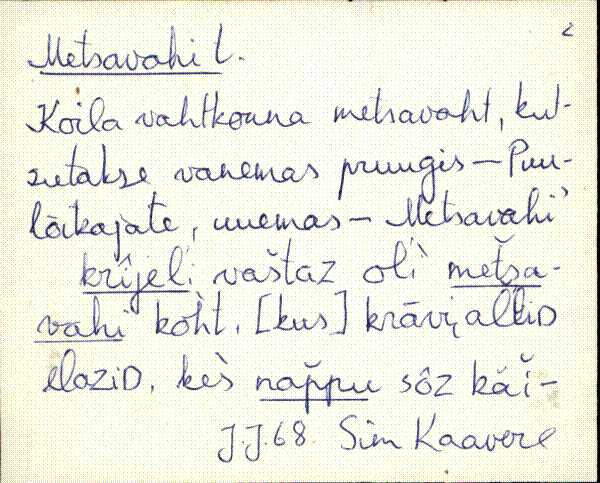 2
Metsavahi t.
Koila vahtkonna metsavaht, kut-
sutakse vanemas pruugis – Puu-
lõikajate, uuemas – Metsavahi
krîjeli vaštaz olì̬ metša-
vahi kòht. [kus] krāvi̬allìD
elaziD. kes̀ nap̆pu sôz kä̆i-
J.J.68. Siim Kaavere